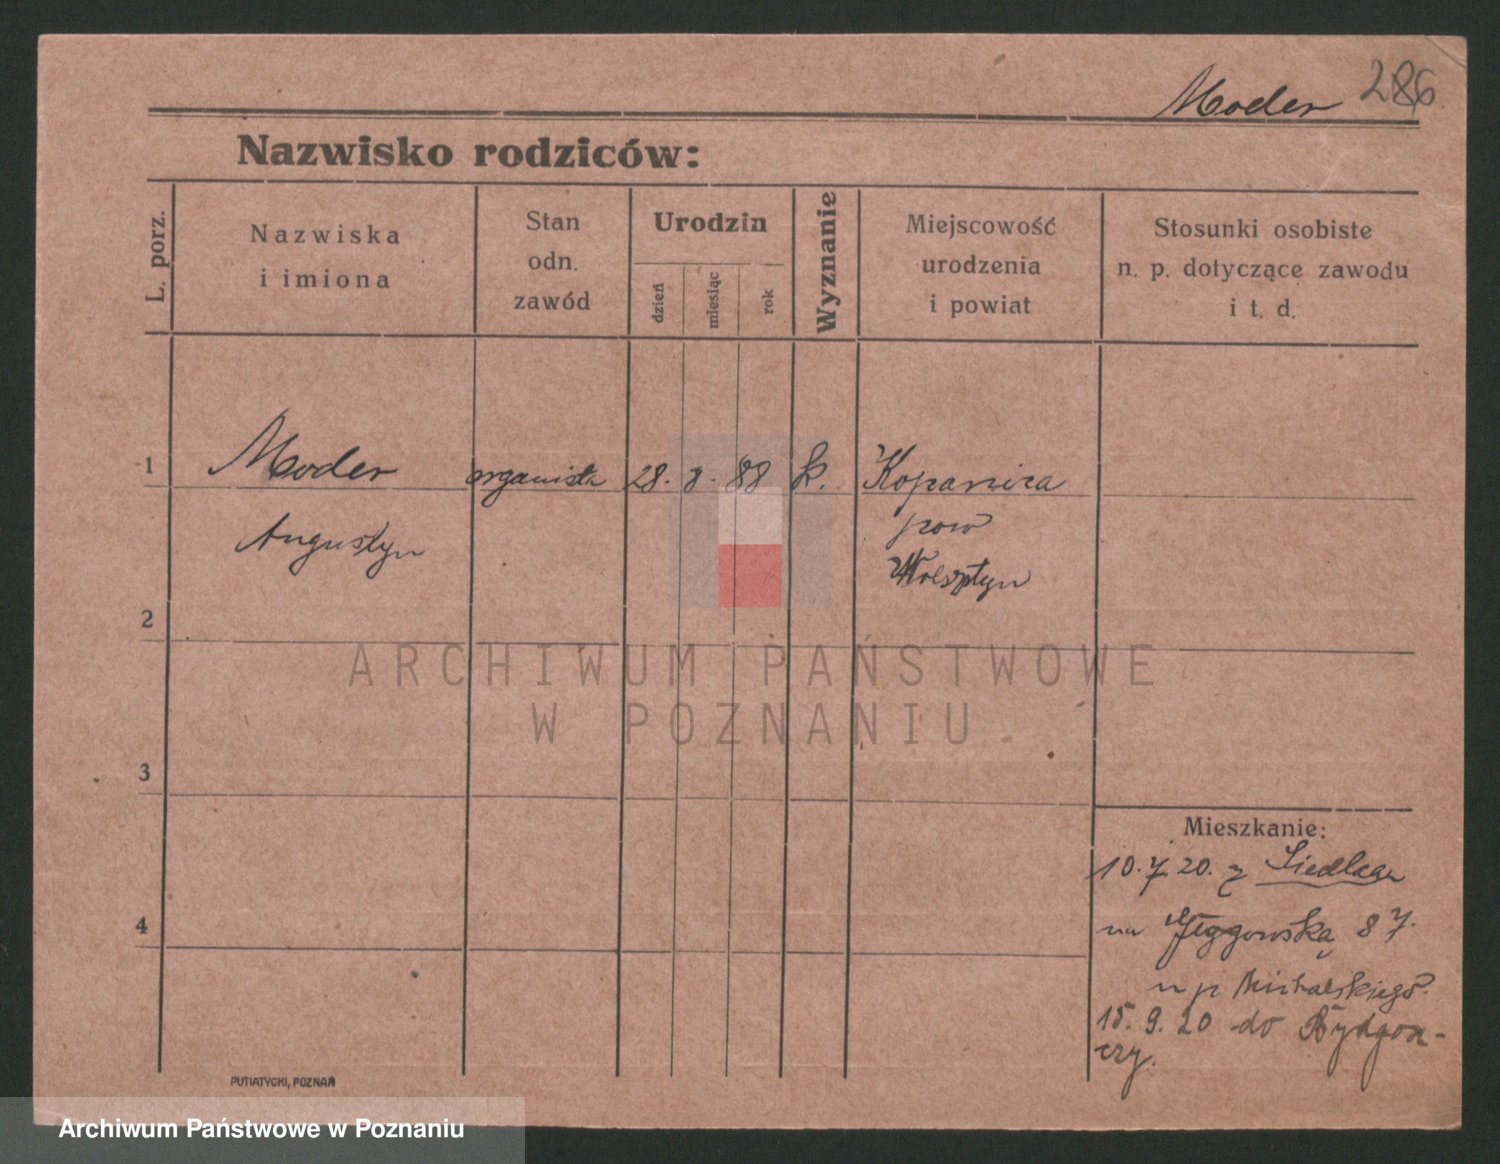 Moder 286
Nazwisko rodziców:
L. porz.
Nazwiska
i imiona
Stan
odn.
zawód
Urodzin
dzień
miesiąc
rok
Wyznanie
Miejscowość
urodzenia
i powiat
Stosunki osobiste
n. p. dotyczące zawodu
i t. d.
1 Moder organista 28. 8. 88 k. Kopanica
Augustyn pow
Wolsztyn
2
ARCHIWUM PAŃSTWOWE
W POZNANIU
3
Mieszkanie:
10.7.20. z Siedlca
4
na 87.
u p Michalskiego.
15. 9. 20 do Bydgosz-
czy.
PUTIATYCKI, POZNAŃ
Archiwum Państwowe w Poznaniu